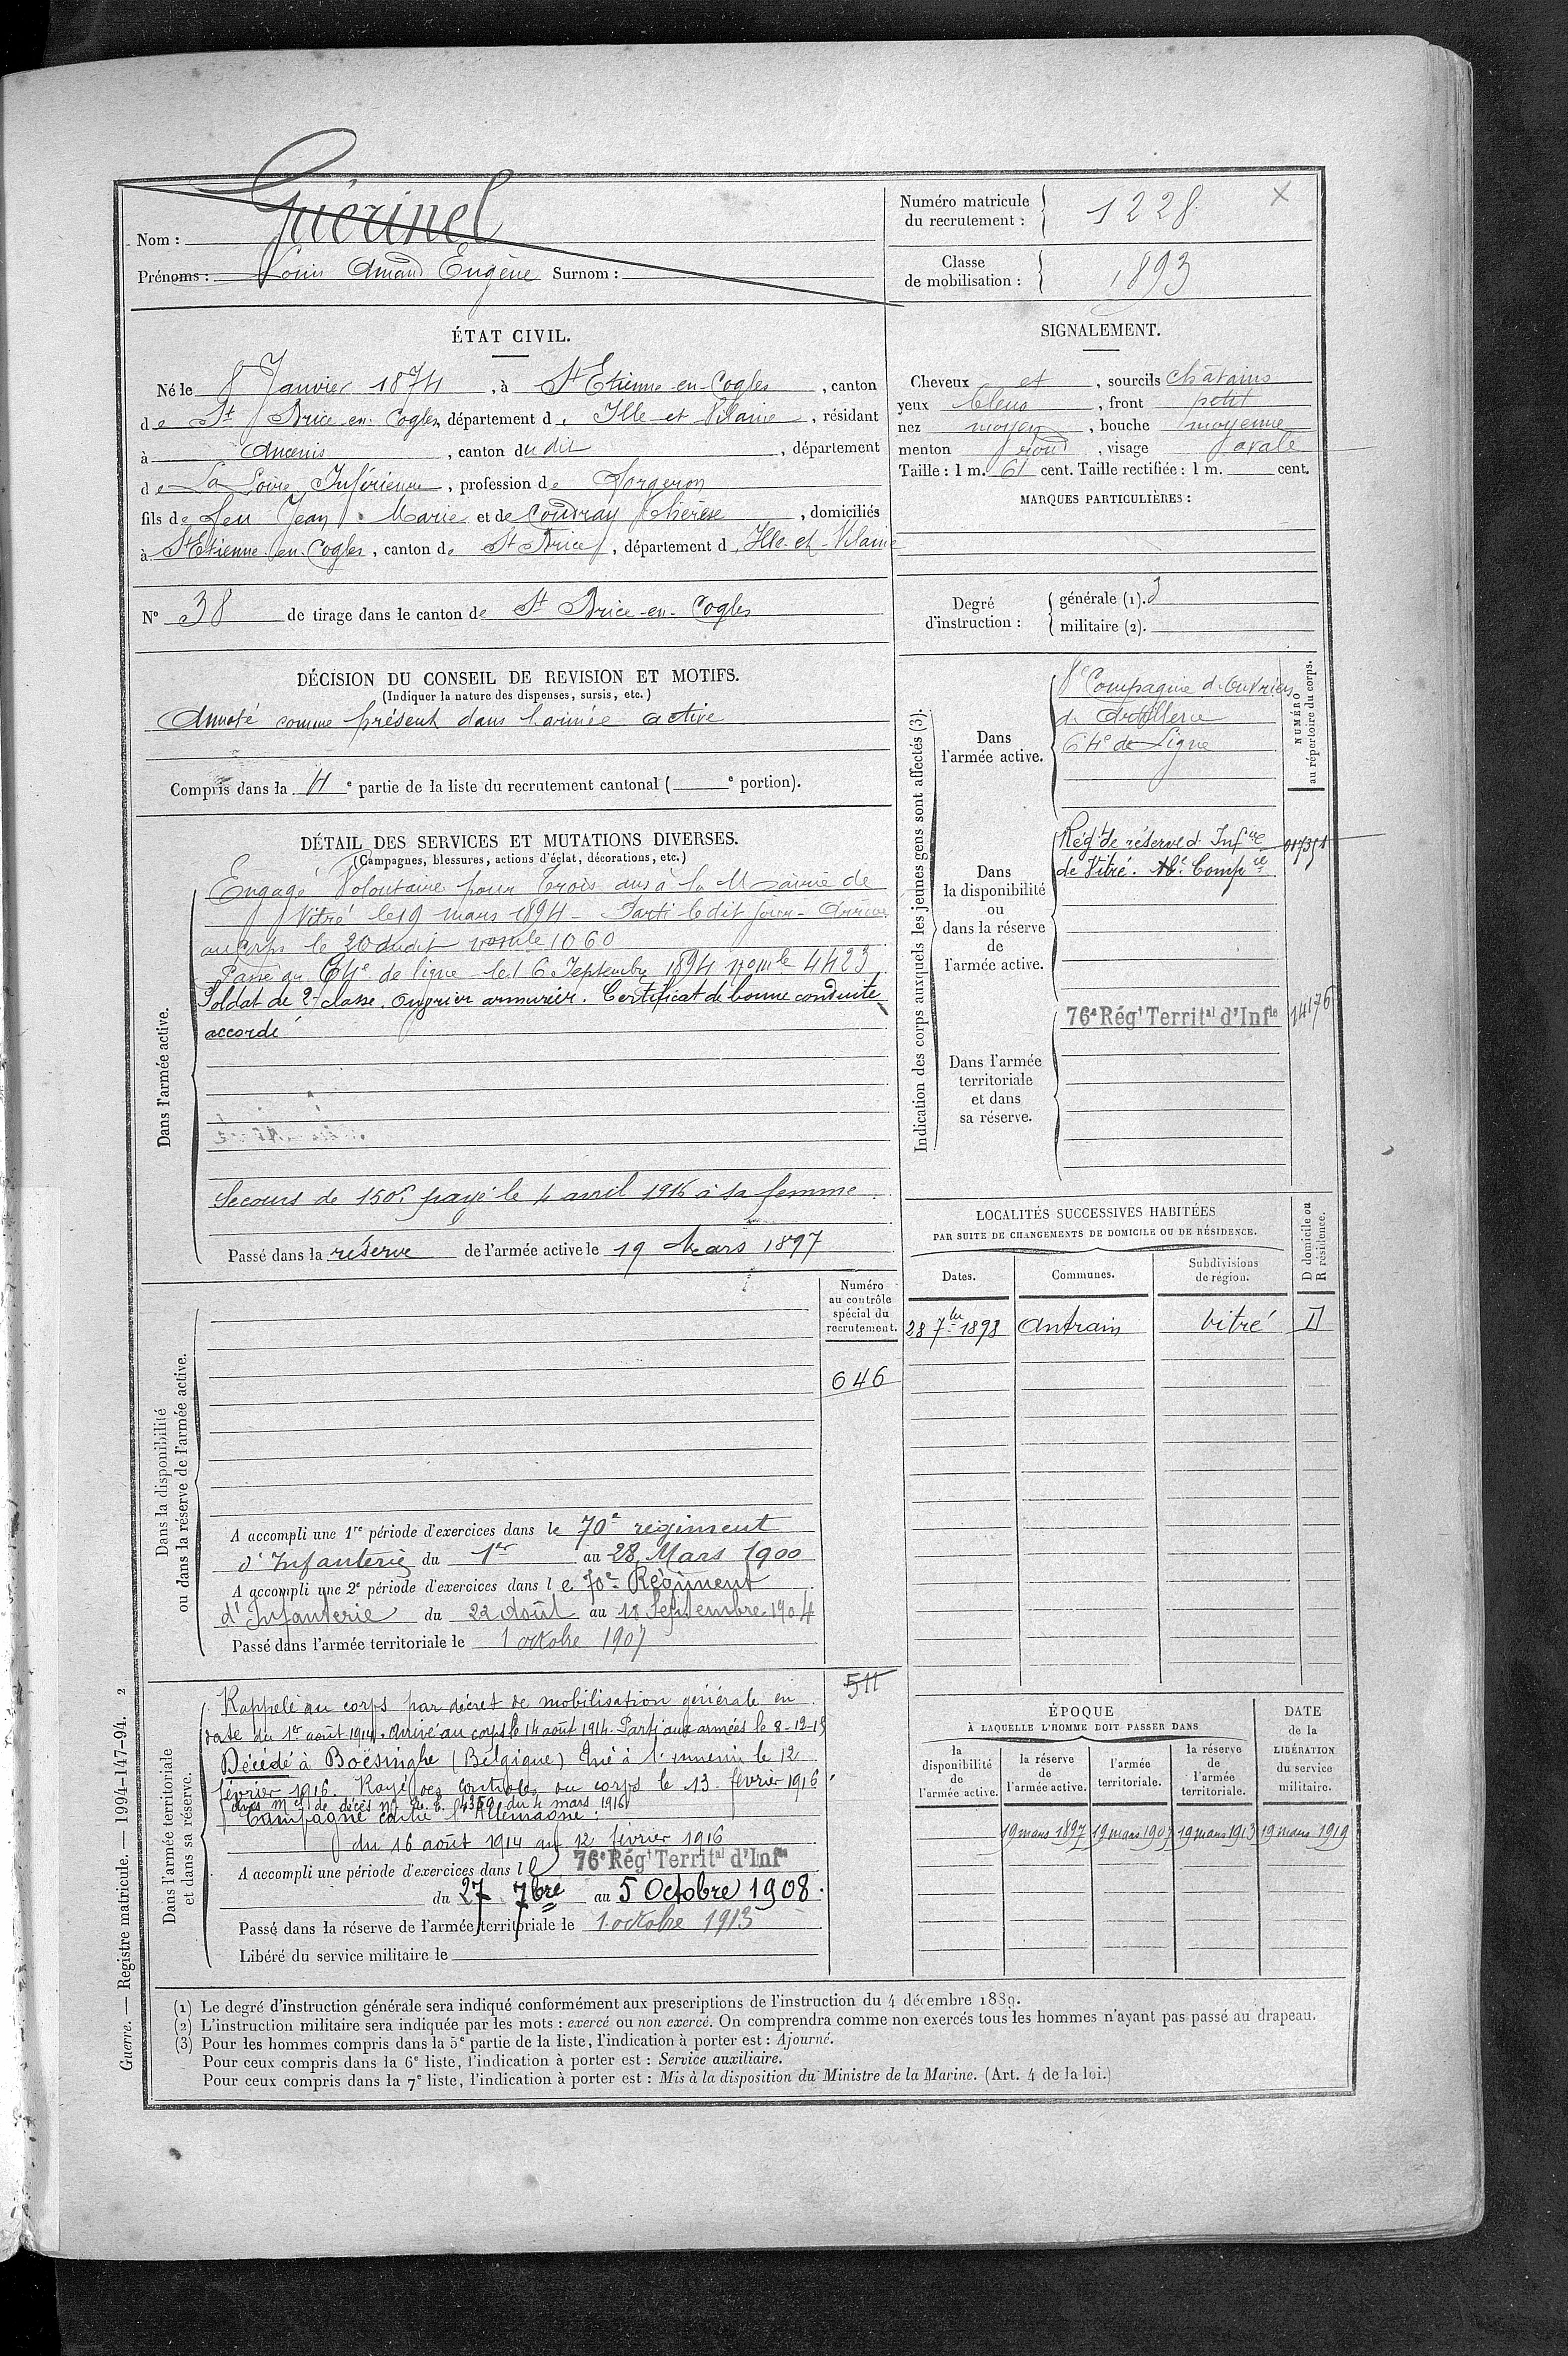 Nom : Guérinel
Prénoms : Louis Amand Eugène Surnom :
Numéro matricule du recrutement : 1228
Classe de mobilisation : 1893
X
ÉTAT CIVIL.
Né le 8 Janvier 1874, à St Etienne-en-Cogles, canton
de St Brice-en-Cogles, département d Ille-et-Vilaine, résidant
à Ancenis, canton du dit, département
de La Loire Inférieure, profession de Forgeron
fils de feu Jean Marie et de Coudray Thérèse, domiciliés
à St Etienne-en-Cogles, canton de St Brice, département d Ille-et-Vilaine
N° 38 de tirage dans le canton de St Brice-en-Cogles
SIGNALEMENT.
Cheveux et, sourcils châtains
yeux bleus, front petit
nez moyen, bouche moyenne
menton rond, visage ovale
Taille : 1 m. 61 cent. Taille rectifiée : 1 m. cent.
MARQUES PARTICULIÈRES :
Degré d'instruction :
générale (1). 3
militaire (2).
DÉCISION DU CONSEIL DE REVISION ET MOTIFS.
(Indiquer la nature des dispenses, sursis, etc.)
Annoté comme présent dans l'armée active
Compris dans la 4e partie de la liste du recrutement cantonal ( e portion).
DÉTAIL DES SERVICES ET MUTATIONS DIVERSES.
(Campagnes, blessures, actions d'éclat, décorations, etc.)
Dans l'armée active.
Engagé Volontaire pour trois ans à la Mairie de
Vitré le 19 mars 1894 - Parti le dit jour - Arrivé
au corps le 20 dudit nom le 1060
Passé au 64e de ligne le 16 Septembre 1894 nom le 4423
Soldat de 2e classe. Ouvrier armurier. Certificat de bonne conduite
accordé
Secours de 150f payé le 4 avril 1916 à sa femme.
Passé dans la réserve de l'armée active le 19 Mars 1897
Indication des corps auxquels les jeunes gens sont affectés (3).
NUMÉRO au répertoire du corps.
Dans l'armée active.
8e Compagnie d'Ouvriers
d'Artillerie
64e de Ligne
Dans la disponibilité ou dans la réserve de l'armée active.
Régt de réserve d'Infie
de Vitré. Compie
Dans l'armée territoriale et dans sa réserve.
76e Régt Territal d'Infie
14176
LOCALITÉS SUCCESSIVES HABITÉES
PAR SUITE DE CHANGEMENTS DE DOMICILE OU DE RÉSIDENCE.
Dates. Communes. Subdivisions de région. D domicile ou R résidence.
28 7bre 1898 Antrain Vitré D
Dans la disponibilité ou dans la réserve de l'armée active.
Numéro au contrôle spécial du recrutement.
646
A accompli une 1re période d'exercices dans le 70e régiment
d'Infanterie du 1er au 28 Mars 1900
A accompli une 2e période d'exercices dans le 70e Régiment
d'Infanterie du 22 Août au 18 Septembre 1904
Passé dans l'armée territoriale le 1 octobre 1907
Dans l'armée territoriale et dans sa réserve.
511
Rappelé au corps par décret de mobilisation générale en
date du 1er août 1914. Arrivé au corps le 14 août 1914. Parti aux armées le 8-12-15
Décédé à Boësinghe (Belgique) tué à l'ennemi le 12
février 1916. Rayé des contrôles du corps le 13 février 1916
avis mel de décès No 4359 du 4 mars 1916
Campagne contre l'Allemagne :
du 16 août 1914 au 12 février 1916
A accompli une période d'exercices dans le 76e Régt Territal d'Infie
du 27 7bre au 5 Octobre 1908.
Passé dans la réserve de l'armée territoriale le 1 octobre 1913
Libéré du service militaire le
ÉPOQUE
À LAQUELLE L'HOMME DOIT PASSER DANS
la disponibilité de l'armée active. la réserve de l'armée active. l'armée territoriale. la réserve de l'armée territoriale.
DATE de la LIBÉRATION du service militaire.
19 mars 1897 19 mars 1907 19 mars 1913 19 mars 1919
(1) Le degré d'instruction générale sera indiqué conformément aux prescriptions de l'instruction du 4 décembre 1889.
(2) L'instruction militaire sera indiquée par les mots : exercé ou non exercé. On comprendra comme non exercés tous les hommes n'ayant pas passé au drapeau.
(3) Pour les hommes compris dans la 5e partie de la liste, l'indication à porter est : Ajourné.
Pour ceux compris dans la 6e liste, l'indication à porter est : Service auxiliaire.
Pour ceux compris dans la 7e liste, l'indication à porter est : Mis à la disposition du Ministre de la Marine. (Art. 4 de la loi.)
Guerre. — Registre matricule. — 1994-147-94. 2